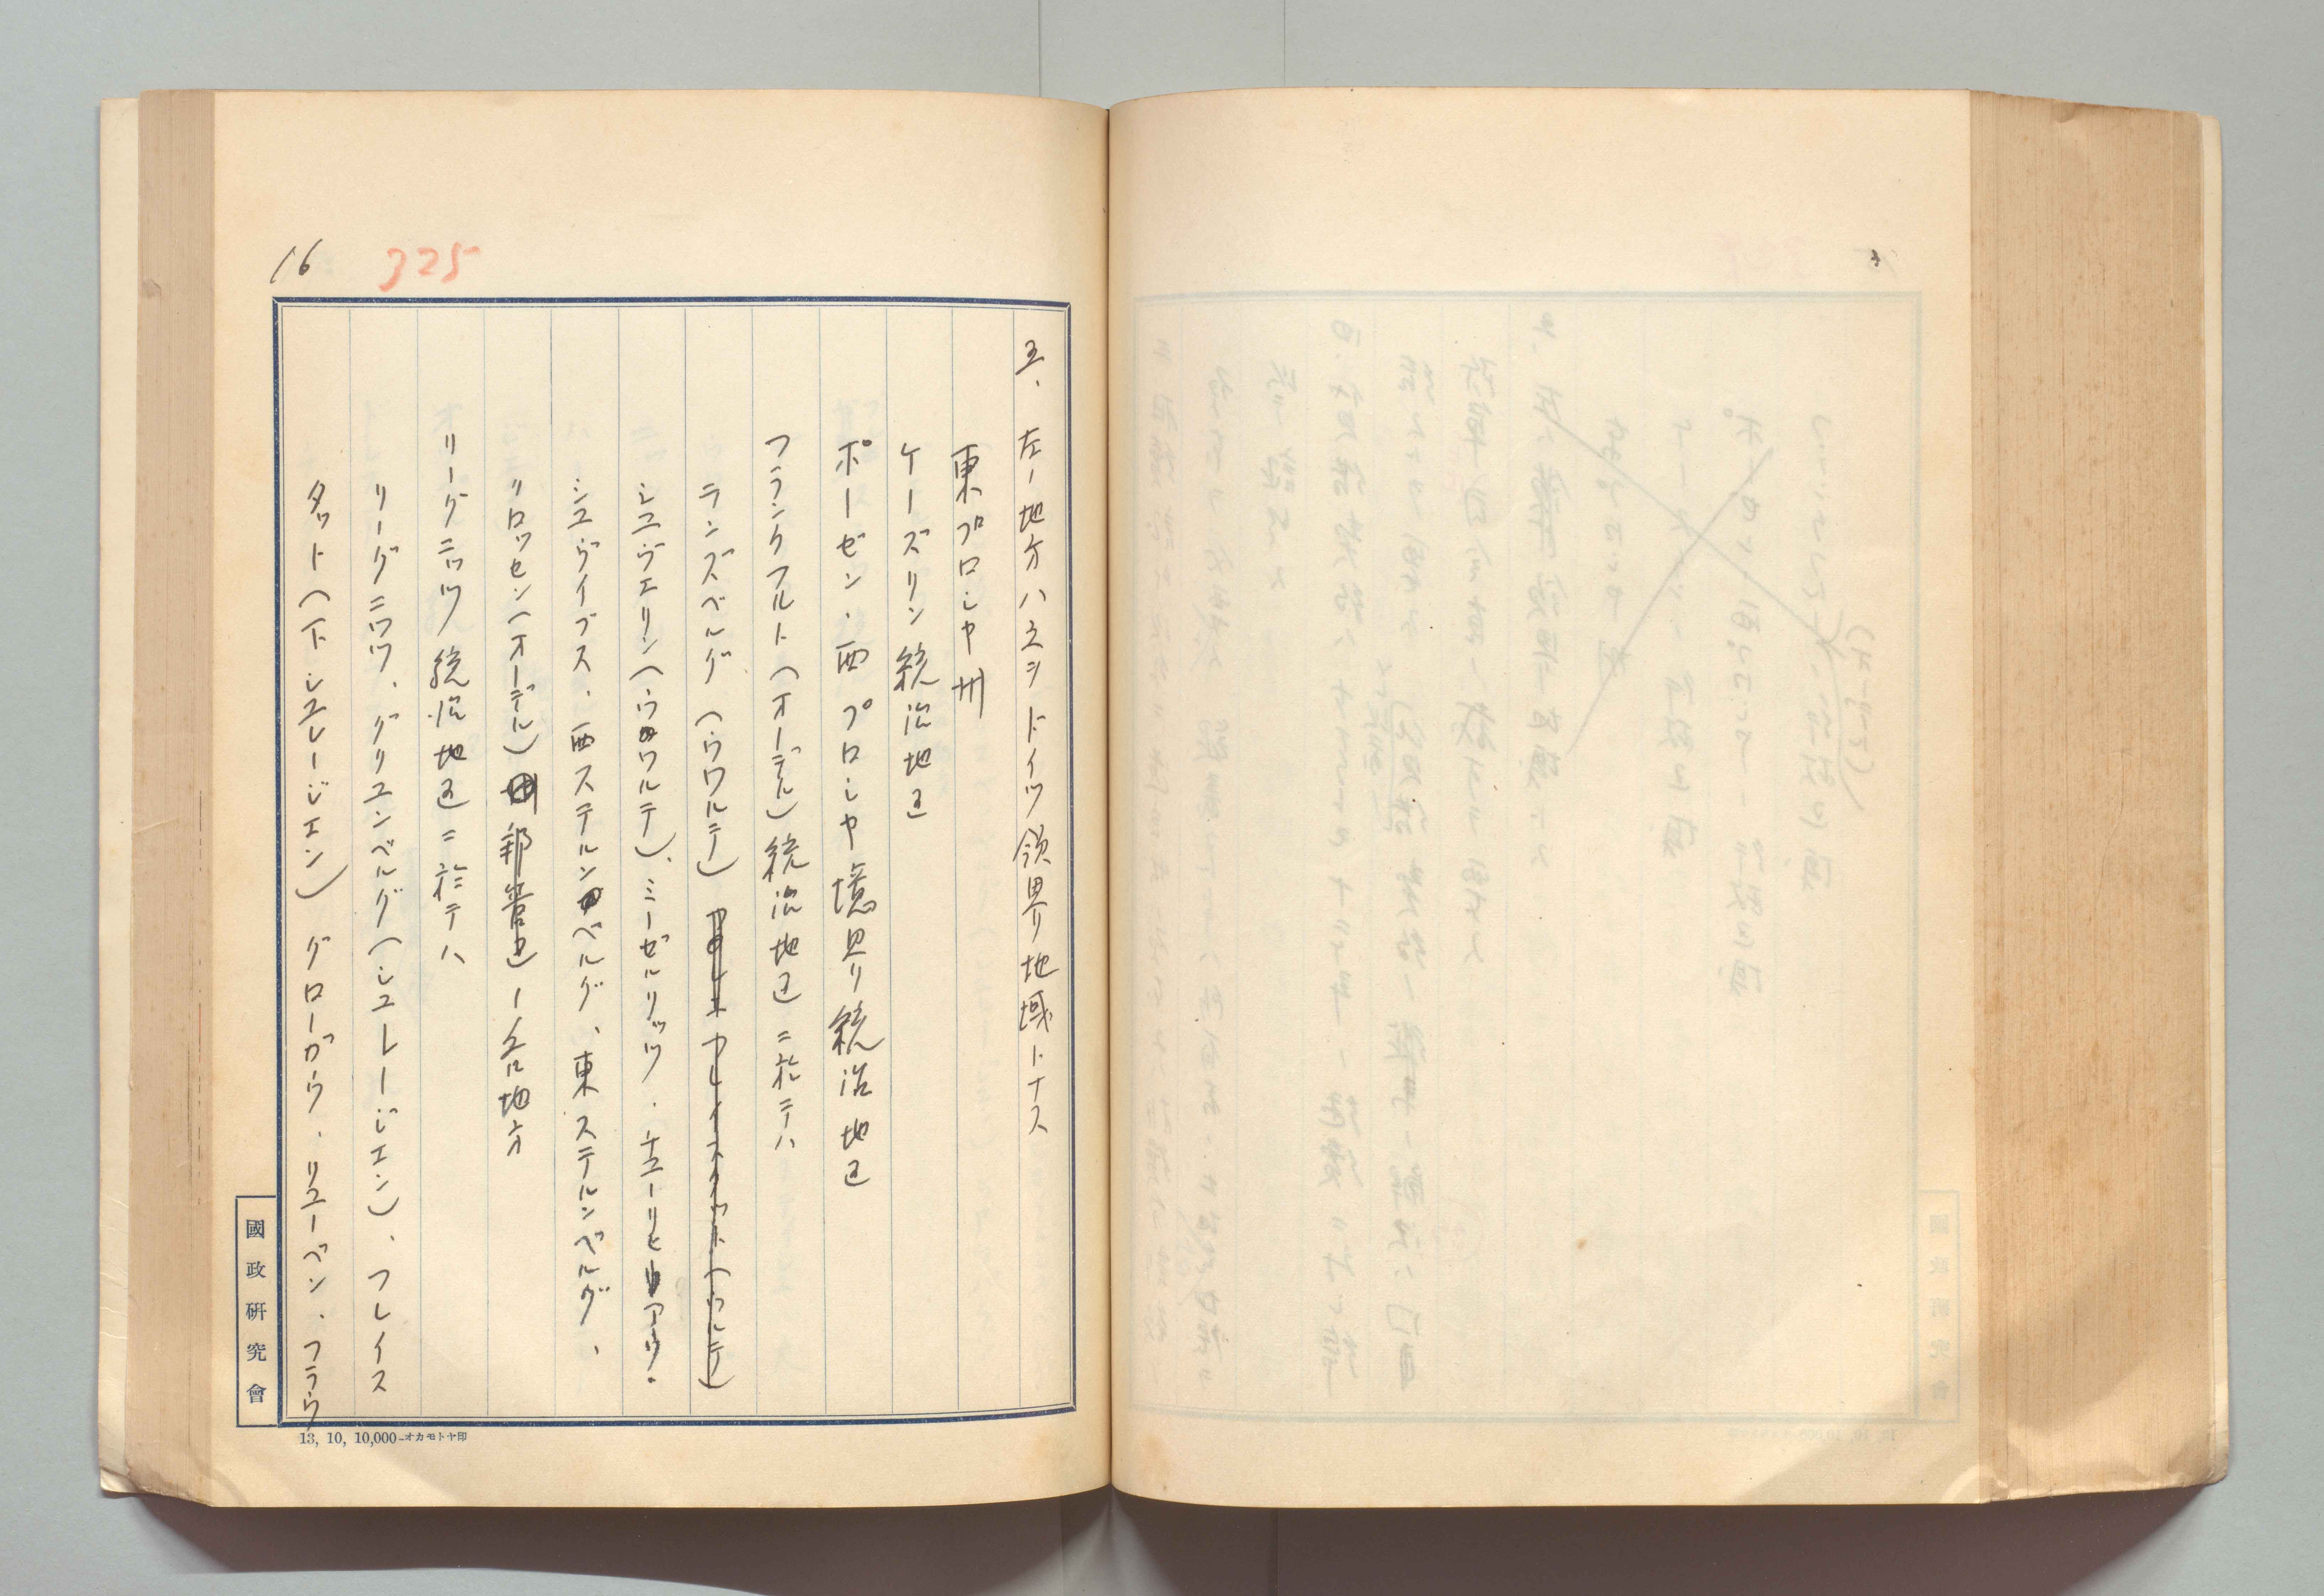 16
325
五、左ノ地方ハ之ヲドイツ領界地域トナス
東プロシヤ州
ケーズリン統治地区
ポーゼン・西プロシヤ境界統治地区
フランクフルト(オーデル)統治地区ニ於テハ
ランズベルグ(ウワルテ)
シユヴエリン(ウワルテ)、ミーゼルリッツ・チユーリヒアウ・
シユヴイブス・西ステルンベルグ、東ステルンベルグ、
リロッセン(オーデル)ノ各地方
リーグニッツ統治地区ニ於テハ
リーグニッツ、グリユンベルグ(シユレージエン)、フレイス
タット(下シユレージエン)グローガウ・リユーベン・フラウ
國政研究會
13, 10, 10,000-オカモトヤ印